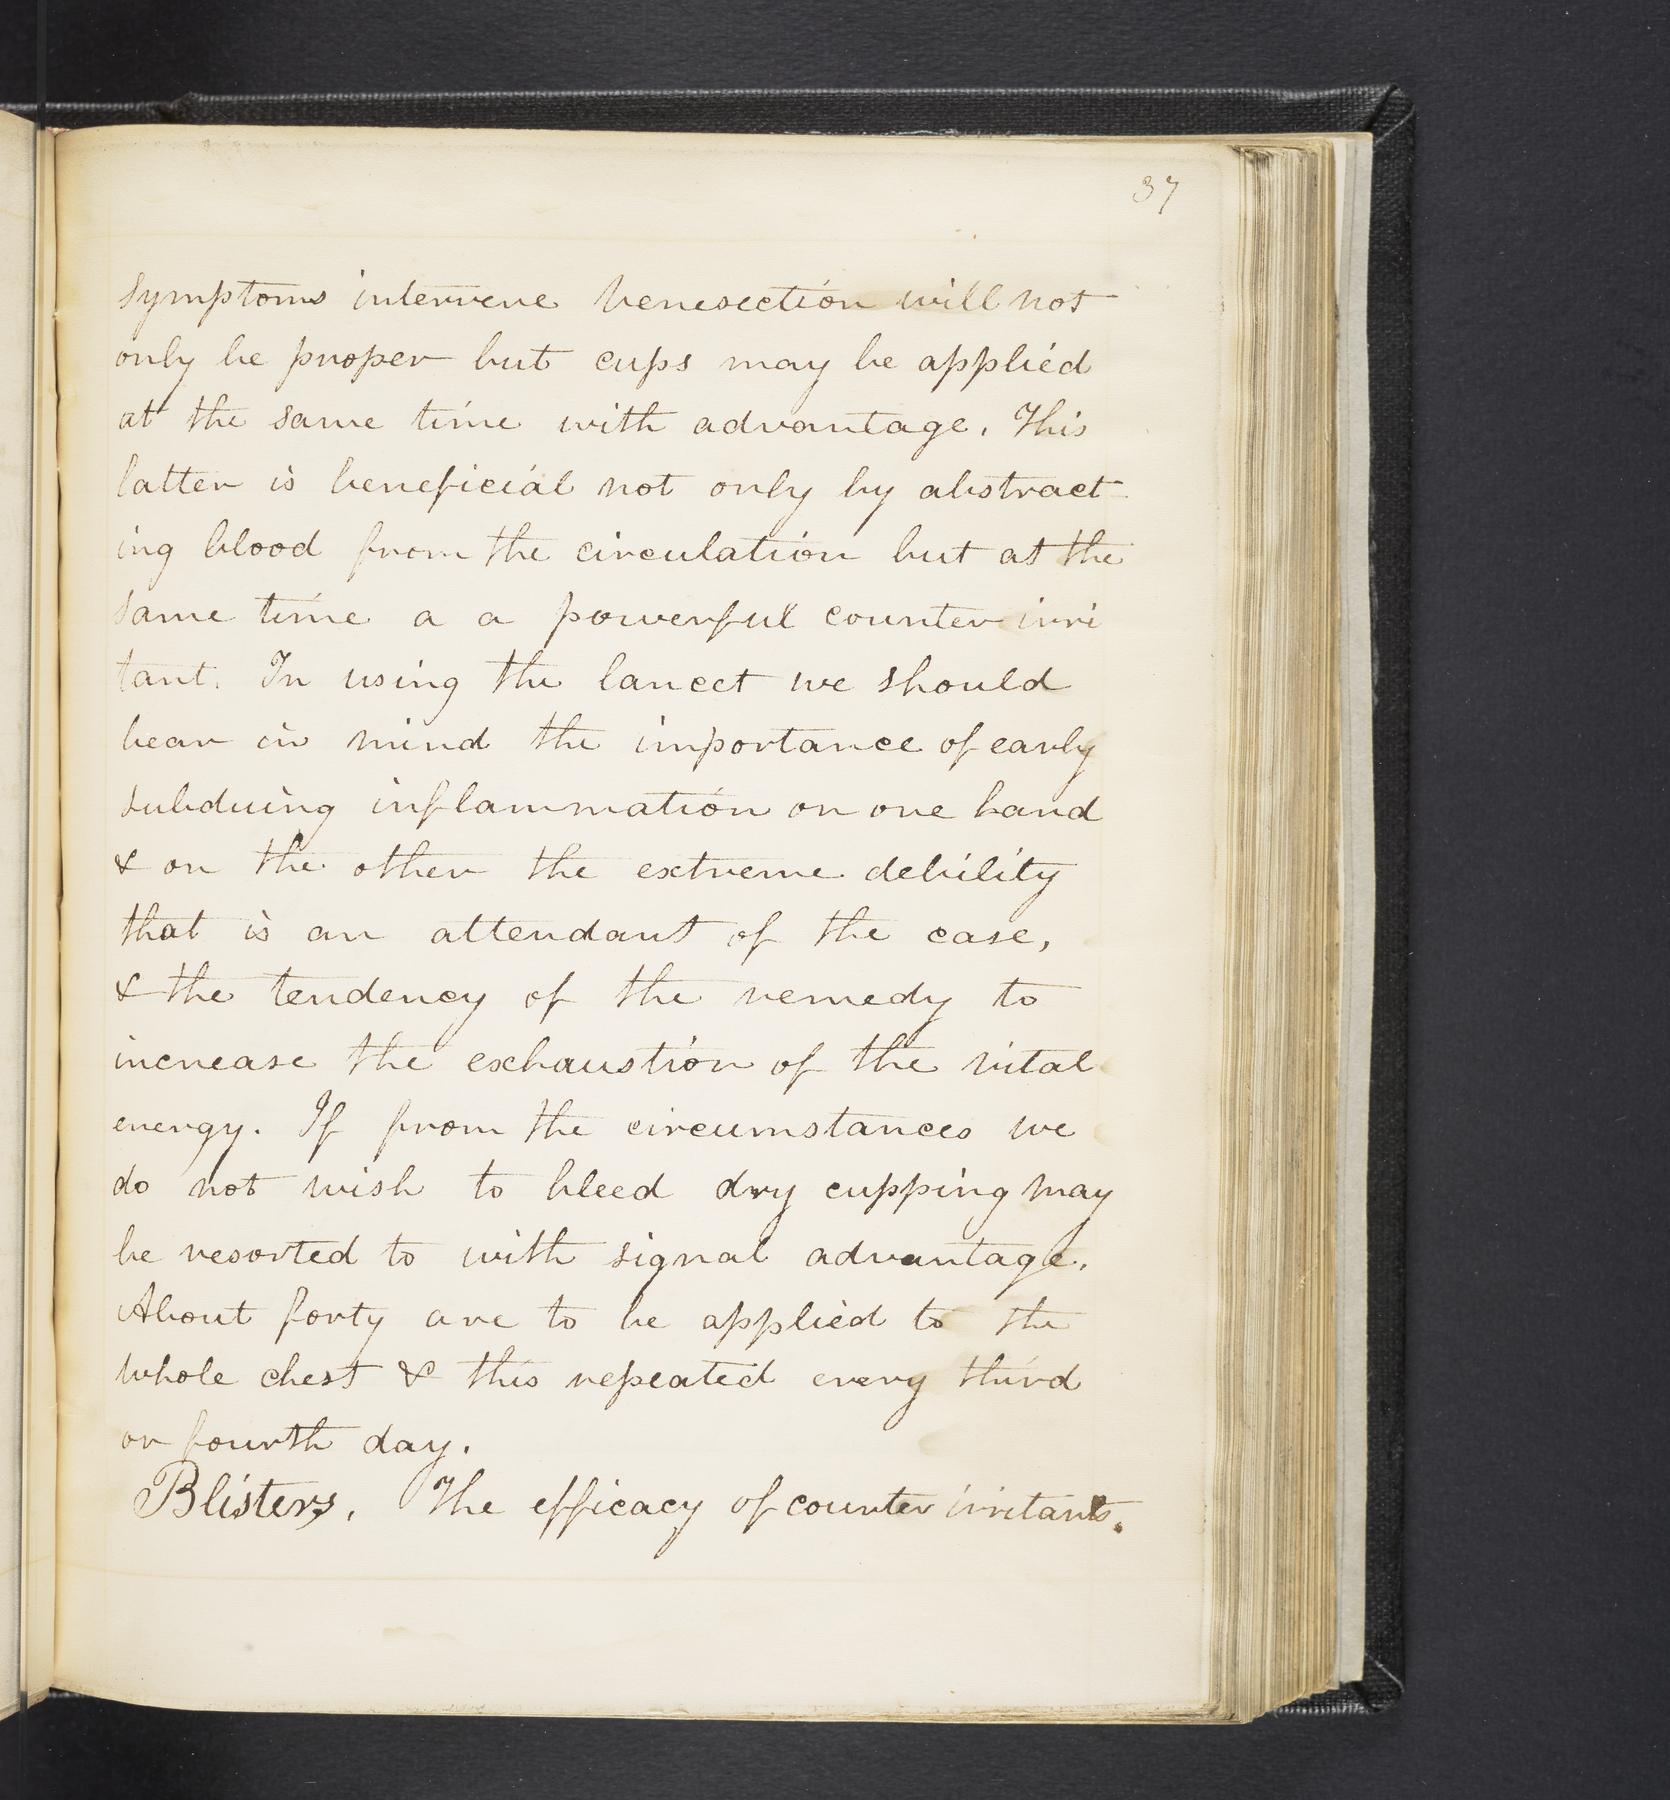 37
symptoms intervene venesection will not
only be proper but cups may be applied
at the same time with advantage. This
latter is beneficial not only by abstract
ing blood from the circulation but at the
same time a a powerful counter irri
tant. In using the lancet we should
bear in mind the importance of early
subduing inflammation on one hand
& on the other the extreme debility
that is an attendant of the case,
& the tendency of the remedy to
increase the exhaustion of the vital
energy. If from the circumstances we
do not wish to bleed dry cupping may
be resorted to with signal advantage.
About forty are to be applied to the
whole chest & this repeated every third
or fourth day.
Blisters. The efficacy of counter irritants.